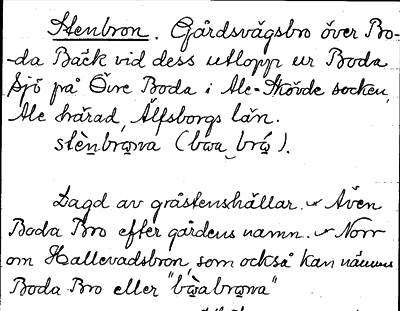 Stenbron. Gårdsvägsbro över Bo-
-da Bäck vid dess utlopp ur Boda
Sjö på Övre Boda i Ale-Skövde socken,
Ale härad, Älfsborgs län.
stèn̲brω̲na (bωa brώ̲).
Lagd av gråstenshällar. Även
Boda Bro efter gårdens namn. Norr
om Hallevadsbron, som också kan nämnas
Boda Bro eller "bὼ̲abrω̲na"